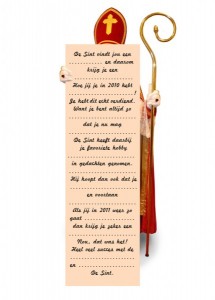 De Sint vindt jou een
.................... en daarom
krijg je een
..............................
Hoe jij je in 2010 hebt
.............................. !
Je hebt dit echt verdiend.
Want je bent altijd zo
..............................
dat je nu mag
..............................
De Sint heeft daarbij
je favoriete hobby
..............................
in gedachten genomen.
..............................
Hij hoopt dan ook dat je
..............................
en voortaan
..............................
Als jij in 2011 weer zo
gaat ....................
dan krijg je zeker een
..............................
Nou, dat was het!
Heel veel succes met de
..............................
en ..............................
De Sint.